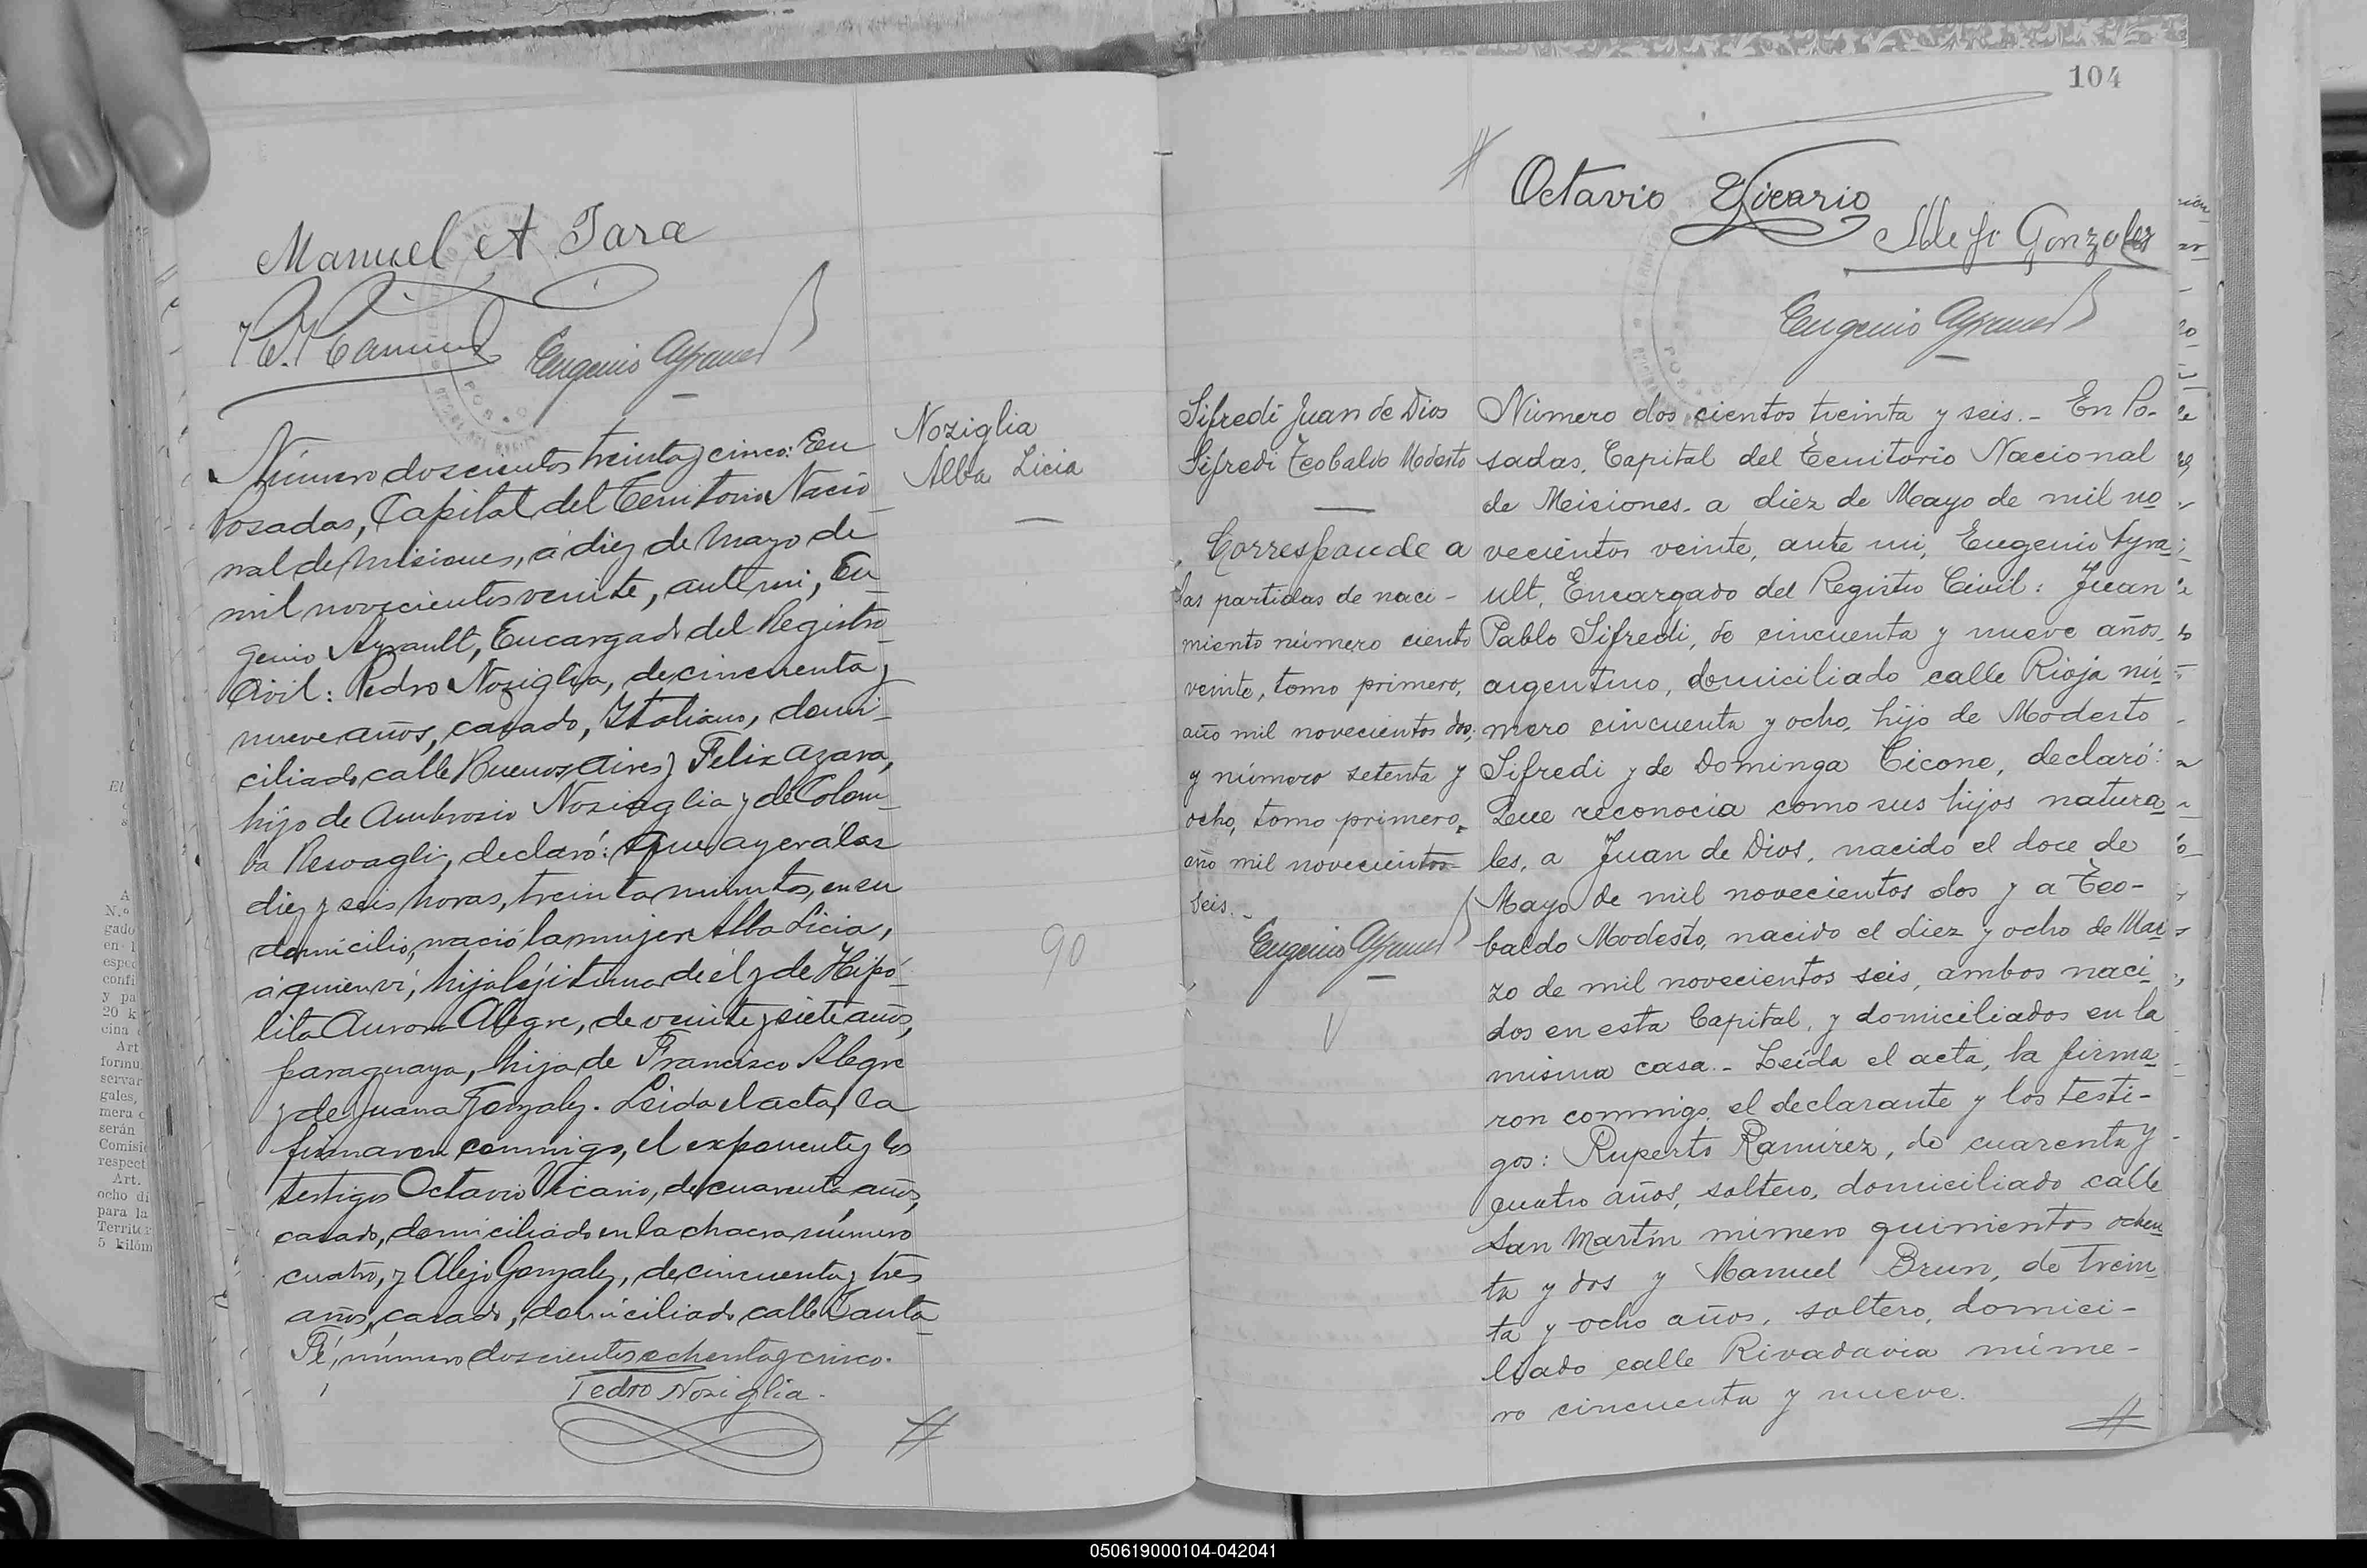 Manuel A Jara
Eugenio Ayrault
Noziglia
Alba Licia
Número doscientos treinta y cinco: En
Posadas, Capital del Territorio Nacio
nal de Misiones, á diez de Mayo de
mil novecientos veinte, ante mi, Eu_
genio Ayrault, Encargado del Registro
Civil: Pedro Noziglia, de cincuenta y
nueve años, casado, Italiano, domi_
ciliado calle Buenos Aires y Felix Azara,
hijo de Ambrosio Noziaglia y de Colom_
ba declaró: Que ayer á las
diez y seis horas, treinta minutos, en su
domicilio, nació la mujer Alba Licia,
á quien ví, hija lejítima de él y de Hipó_
lita Aurora Alegre, de veinte y siete años,
paraguaya, hija de Francisco Alegre
y de Juana Gonzalez. Leida el acta, la
firmaron conmigo, el exponente y los
testigos Octavio Vicario, de cuarenta años,
casado, domiciliado en la chacra número
cuatro, y Alejo Gonzalez, de cincuenta y tres
años, casado, domiciliado calle Santa
Fé, número doscientos ochenta y cinco.
Pedro Noziglia.
90
104
Octavio Vicario
Alejo Gonzalez
Eugenio Ayrault
Sifredi Juan de Dios
Sifredi Teobaldo Modesto
Corresponde a
las partidas de naci-
miento número ciento
veinte, tomo primero,
año mil novecientos dos;
y número setenta y
ocho, tomo primero,
año mil novecientos
seis._
Eugenio Ayrault
Número dos cientos treinta y seis._ En Po-
sadas, Capital del Territorio Nacional
de Meisiones, a diez de Mayo de mil no
vecientos veinte, ante mi, Eugenio Ayra_
ult, Encargado del Registro Civil: Juan
Pablo Sifredi, de cincuenta y nueve años,
argentino, domiciliado calle Rioja nú_
mero cincuenta y ocho, hijo de Modesto
Sifredi y de Dominga Cicone, declaró:
Que reconocía como sus hijos natura_
les, a Juan de Dios, nacido el doce de
Mayo de mil novecientos dos y a Teo-
baldo Modesto, nacido el diez y ocho de Mar
zo de mil novecientos seis, ambos naci_
dos en esta Capital, y domiciliados en la
misma casa._ Leída el acta, la firma_
ron conmigo, el declarante y los testi-
gos: Ruperto Ramírez, de cuarenta y
cuatro años, soltero, domiciliado calle
San Martín número quinientos ochen_
ta y dos y Manuel Brun, de trein_
ta y ocho años, soltero, domici-
liado calle Rivadavia núme-
ro cincuenta y nueve.
050619000104-042041